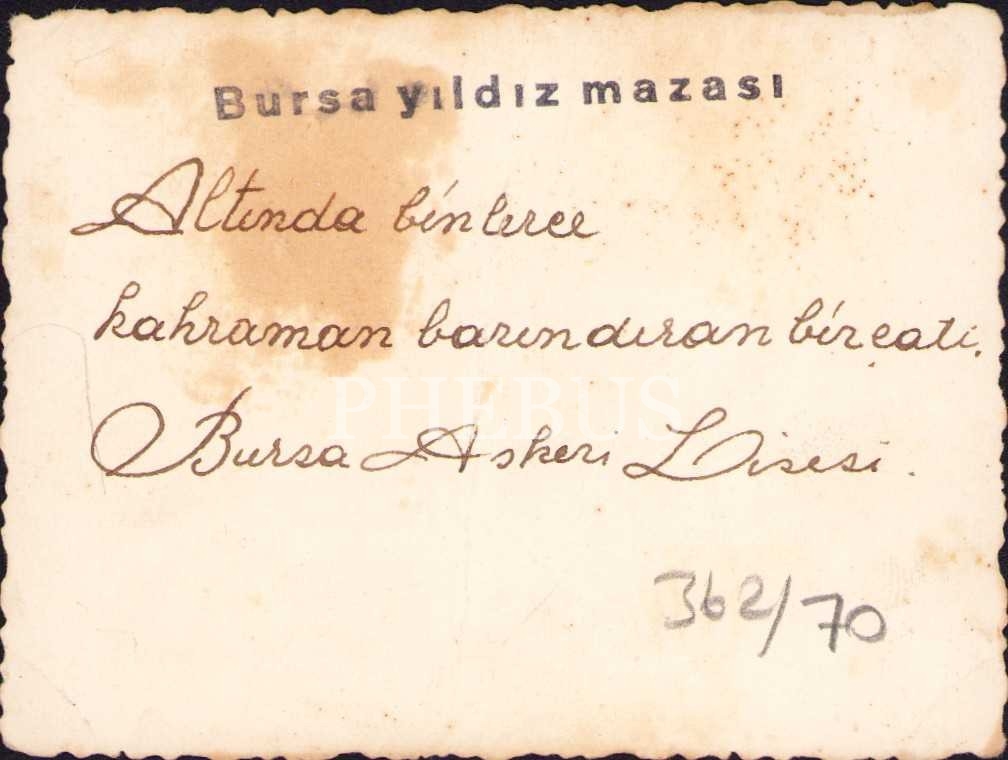 Bursa yıldız mazası
Altında binlerce
kahraman barındıran bir çatı.
PHEBUS
Bursa Askeri Lisesi.
362/70